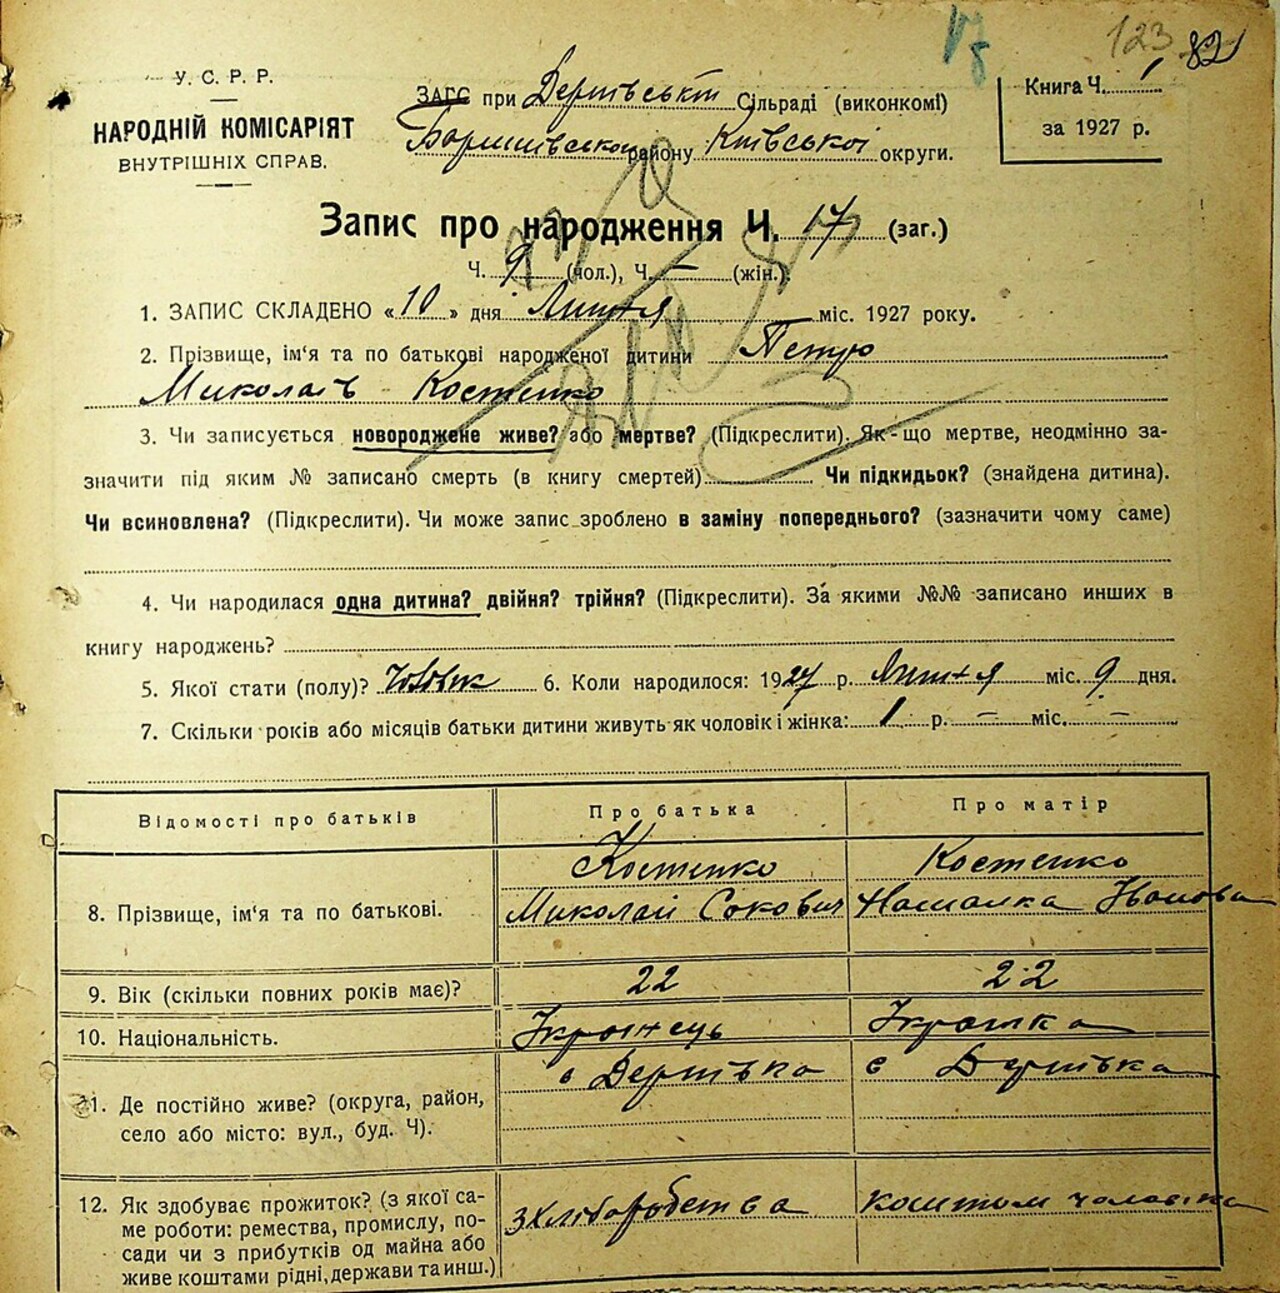 123 82
У. С. Р. Р.
НАРОДНІЙ КОМІСАРІЯТ
ВНУТРІШНІХ СПРАВ.
ЗАГС при Сільраді (виконкомі)
району Київської округи.
Книга Ч. 1
за 1927 р.
Запис про народження Ч. 17 (заг.)
Ч. 9 (чол.), Ч. – (жін.).
1. ЗАПИС СКЛАДЕНО «10» дня Липня міс. 1927 року.
2. Прізвище, ім'я та по батькові народженої дитини Петро
Миколаїв Костенко
3. Чи записується новороджене живе? або мертве? (Підкреслити). Як-що мертве, неодмінно за-
значити під яким № записано смерть (в книгу смертей) Чи підкидьок? (знайдена дитина).
Чи всиновлена? (Підкреслити). Чи може запис зроблено в заміну попереднього? (зазначити чому саме)
4. Чи народилася одна дитина? двійня? трійня? (Підкреслити). За якими №№ записано инших в
книгу народжень?
5. Якої стати (полу)? 6. Коли народилося: 1927 р. Липня міс. 9 дня.
7. Скільки років або місяців батьки дитини живуть як чоловік і жінка: 1 р. – міс. –
Відомості про батьків Про батька Про матір
8. Прізвище, ім'я та по батькові. Костенко Миколай Сокович Костенко Наталка Іванова
9. Вік (скільки повних років має)? 22 22
10. Національність. Українець Українка
11. Де постійно живе? (округа, район, с Дернівка с Дернівка
село або місто: вул., буд. Ч).
12. Як здобуває прожиток? (з якої са- з хліборобства коштом чоловіка
ме роботи: ремества, промислу, по-
сади чи з прибутків од майна або
живе коштами рідні, держави та инш.)